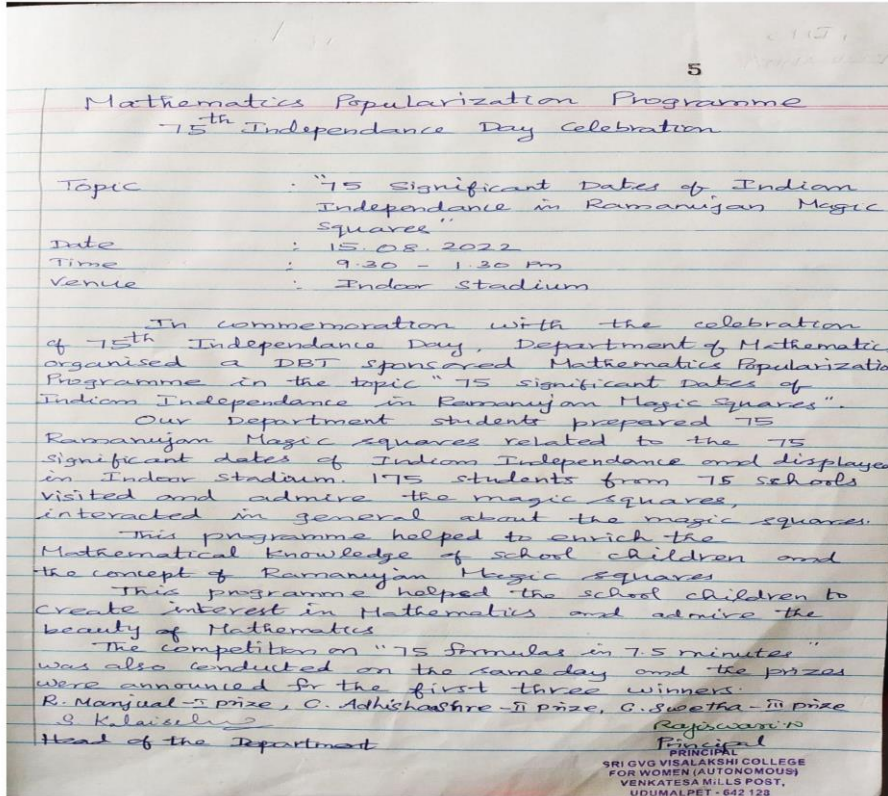 5
Mathematics Popularization Programme
75th Independance Day Celebration
Topic : "75 Significant Dates of Indian
Independance in Ramanujan Magic
Squares"
Date : 15.08.2022
Time : 9.30 - 1.30 Pm
Venue : Indoor Stadium
In commemoration with the celebration
of 75th Independance Day, Department of Mathematic
organised a DBT sponsored Mathematics Popularizatio
Programme in the topic "75 significant Dates of
Indian Independance in Ramanujan Magic Squares".
Our Department students prepared 75
Ramanujan Magic squares related to the 75
significant dates of Indian Independance and displayed
in Indoor Stadium. 175 students from 75 schools
visited and admire the magic squares,
interacted in general about the magic squares.
This programme helped to enrich the
Mathematical knowledge of school children and
the concept of Ramanujan Magic squares
This programme helped the school children to
create interest in Mathematics and admire the
beauty of Mathematics
The competition on "75 formulas in 7.5 minutes"
was also conducted on the same day and the prizes
were announced for the first three winners.
R. Manjual - I prize, C. Adhishashre - II prize, G. Swetha - III prize
S. Kalaiselvi Rajeswari.N
Head of the Department Principal
PRINCIPAL
SRI GVG VISALAKSHI COLLEGE
FOR WOMEN (AUTONOMOUS)
VENKATESA MILLS POST,
UDUMALPET - 642 128